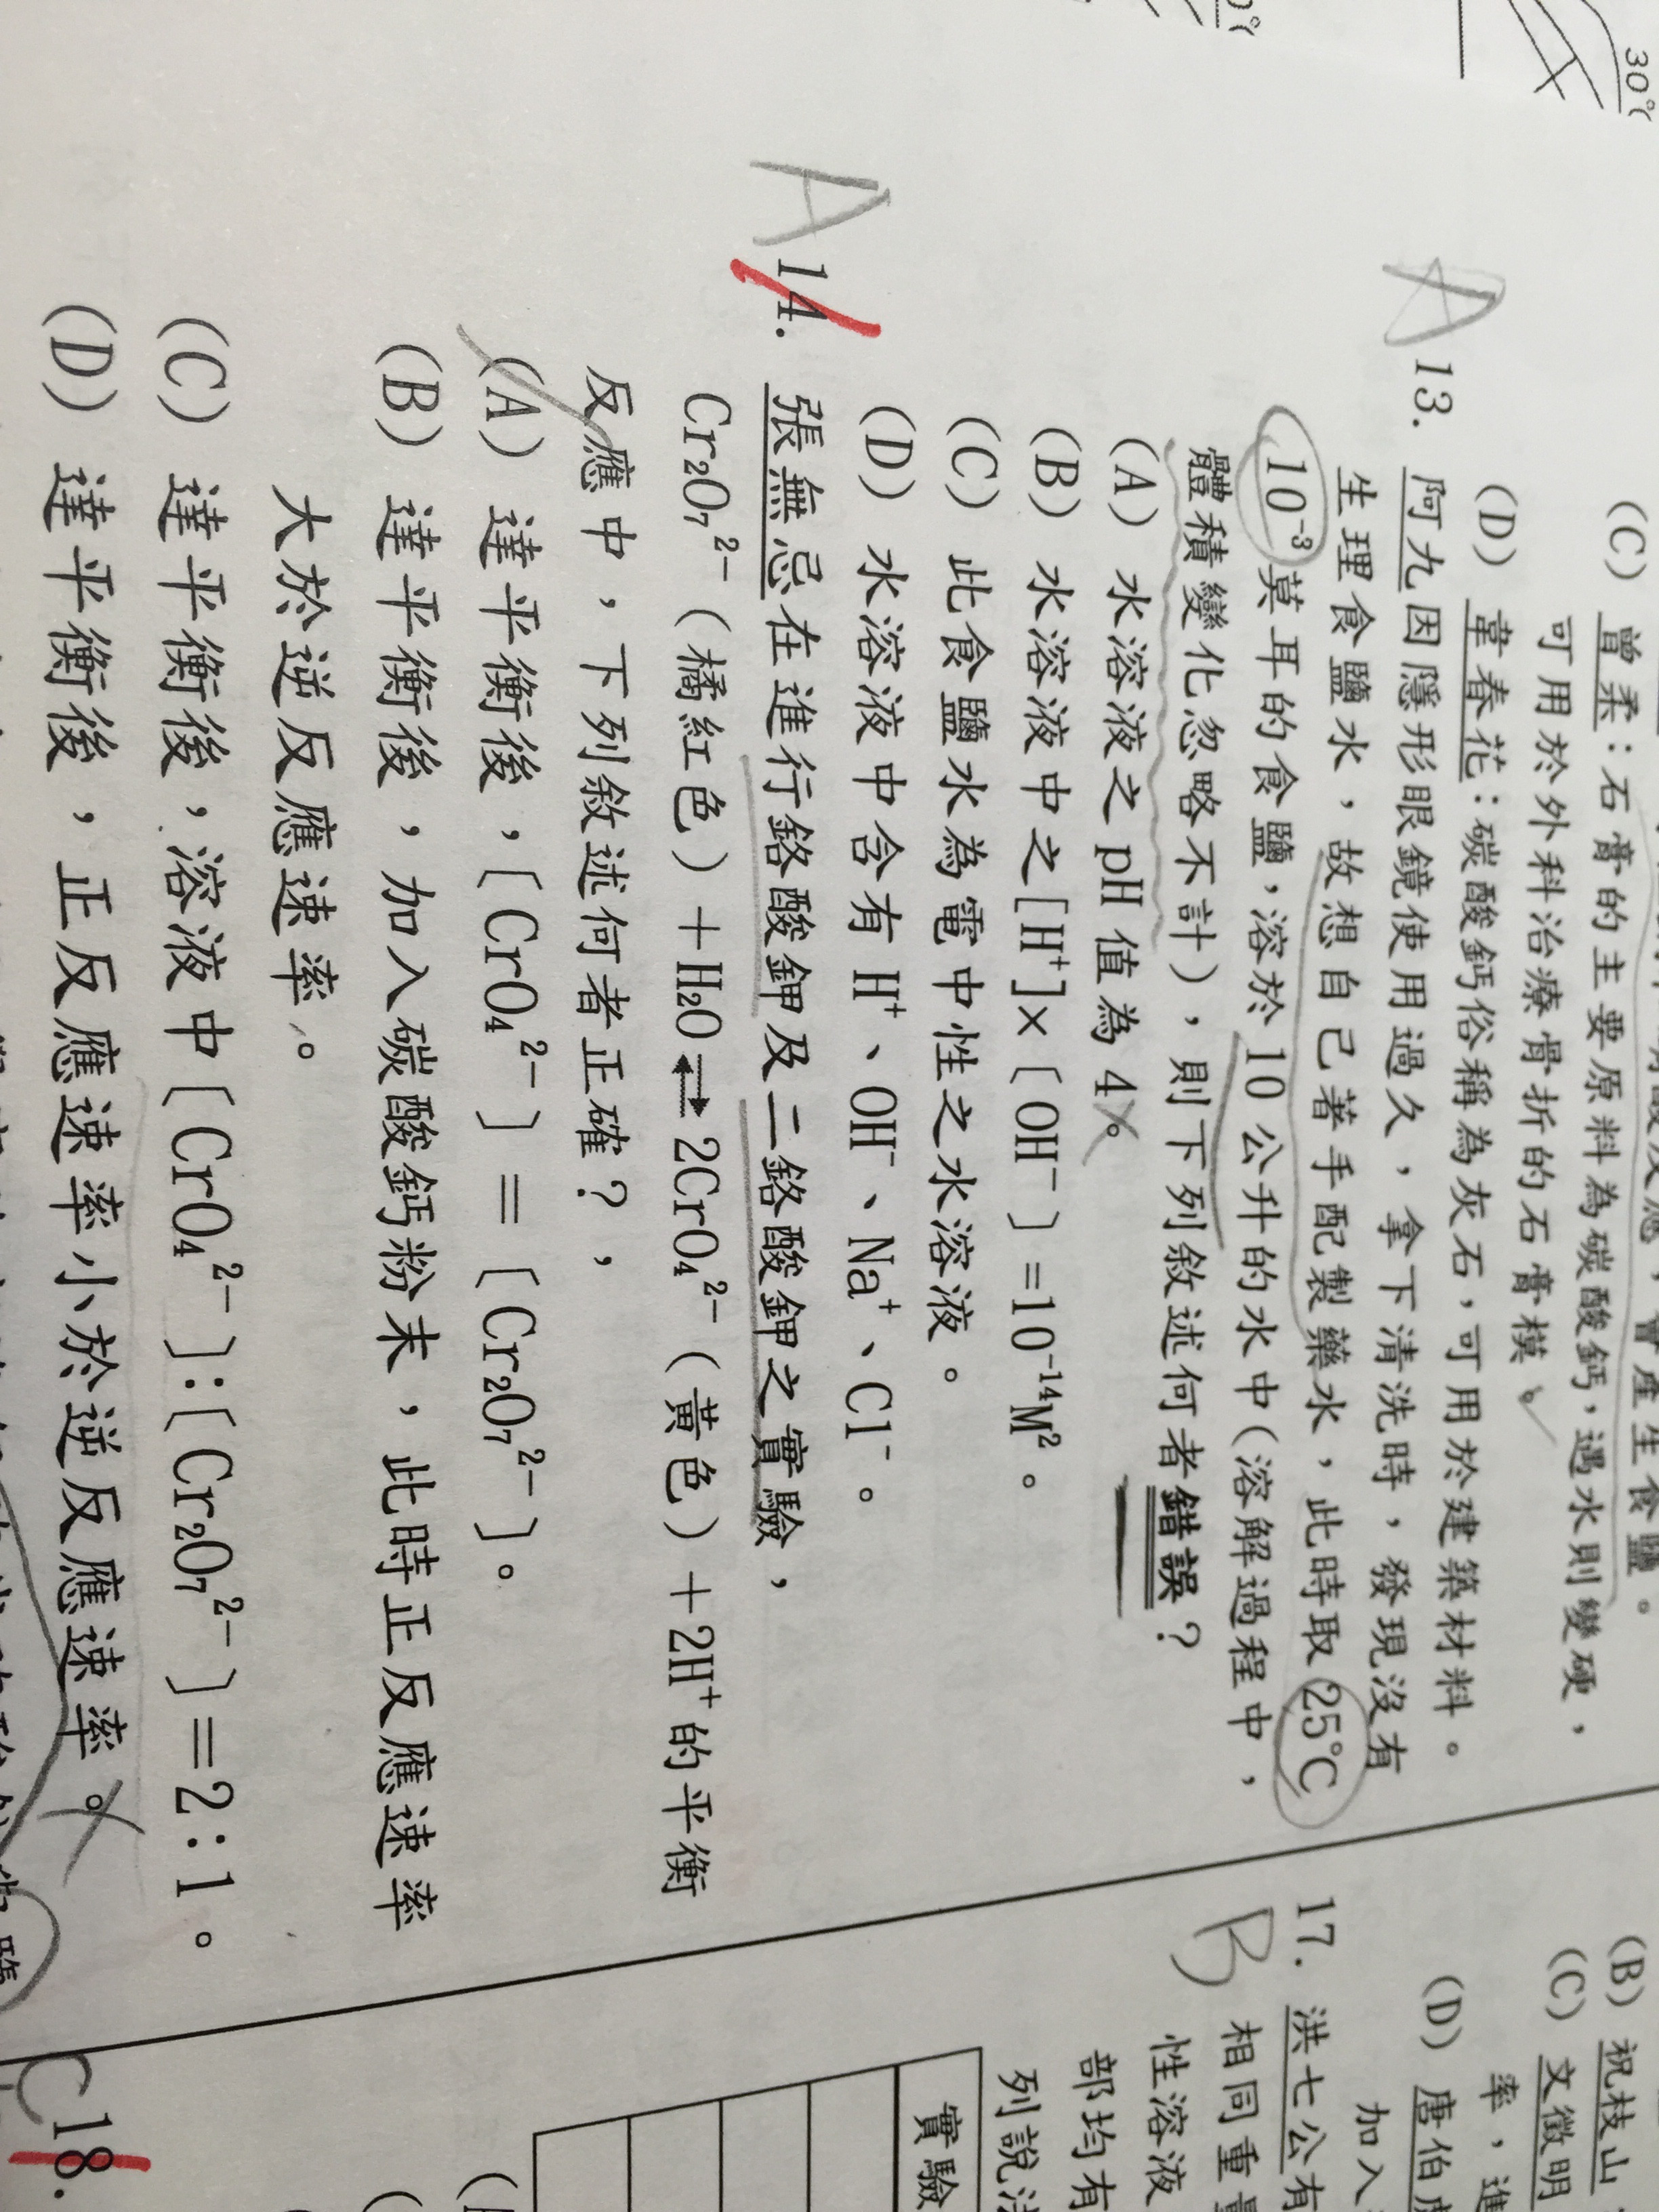 30℃
(C) 曾柔：石膏的主要原料為碳酸鈣，遇水則變硬，
可用於外科治療骨折的石膏模。
(D) 韋春花：碳酸鈣俗稱為灰石，可用於建築材料。
A 13. 阿九因隱形眼鏡使用過久，拿下清洗時，發現沒有
生理食鹽水，故想自己著手配製藥水，此時取25℃
10⁻³莫耳的食鹽，溶於10公升的水中（溶解過程中，
體積變化忽略不計），則下列敘述何者錯誤？
(A) 水溶液之pH值為4。
(B) 水溶液中之[H⁺]×〔OH⁻〕=10⁻¹⁴M²。
(C) 此食鹽水為電中性之水溶液。
(D) 水溶液中含有H⁺、OH⁻、Na⁺、Cl⁻。
A 14. 張無忌在進行鉻酸鉀及二鉻酸鉀之實驗，
Cr₂O₇²⁻（橘紅色）＋H₂O⇌2CrO₄²⁻（黃色）＋2H⁺的平衡
反應中，下列敘述何者正確？，
(A) 達平衡後，〔CrO₄²⁻〕＝〔Cr₂O₇²⁻〕。
(B) 達平衡後，加入碳酸鈣粉末，此時正反應速率
大於逆反應速率。
(C) 達平衡後，溶液中〔CrO₄²⁻〕:〔Cr₂O₇²⁻〕＝2：1。
(D) 達平衡後，正反應速率小於逆反應速率。
(B) 祝枝山
(C) 文徵明
率，進
(D) 唐伯虎
加入
B 17. 洪七公有
相同重量
性溶液
部均有
列說法
實驗
C 18.